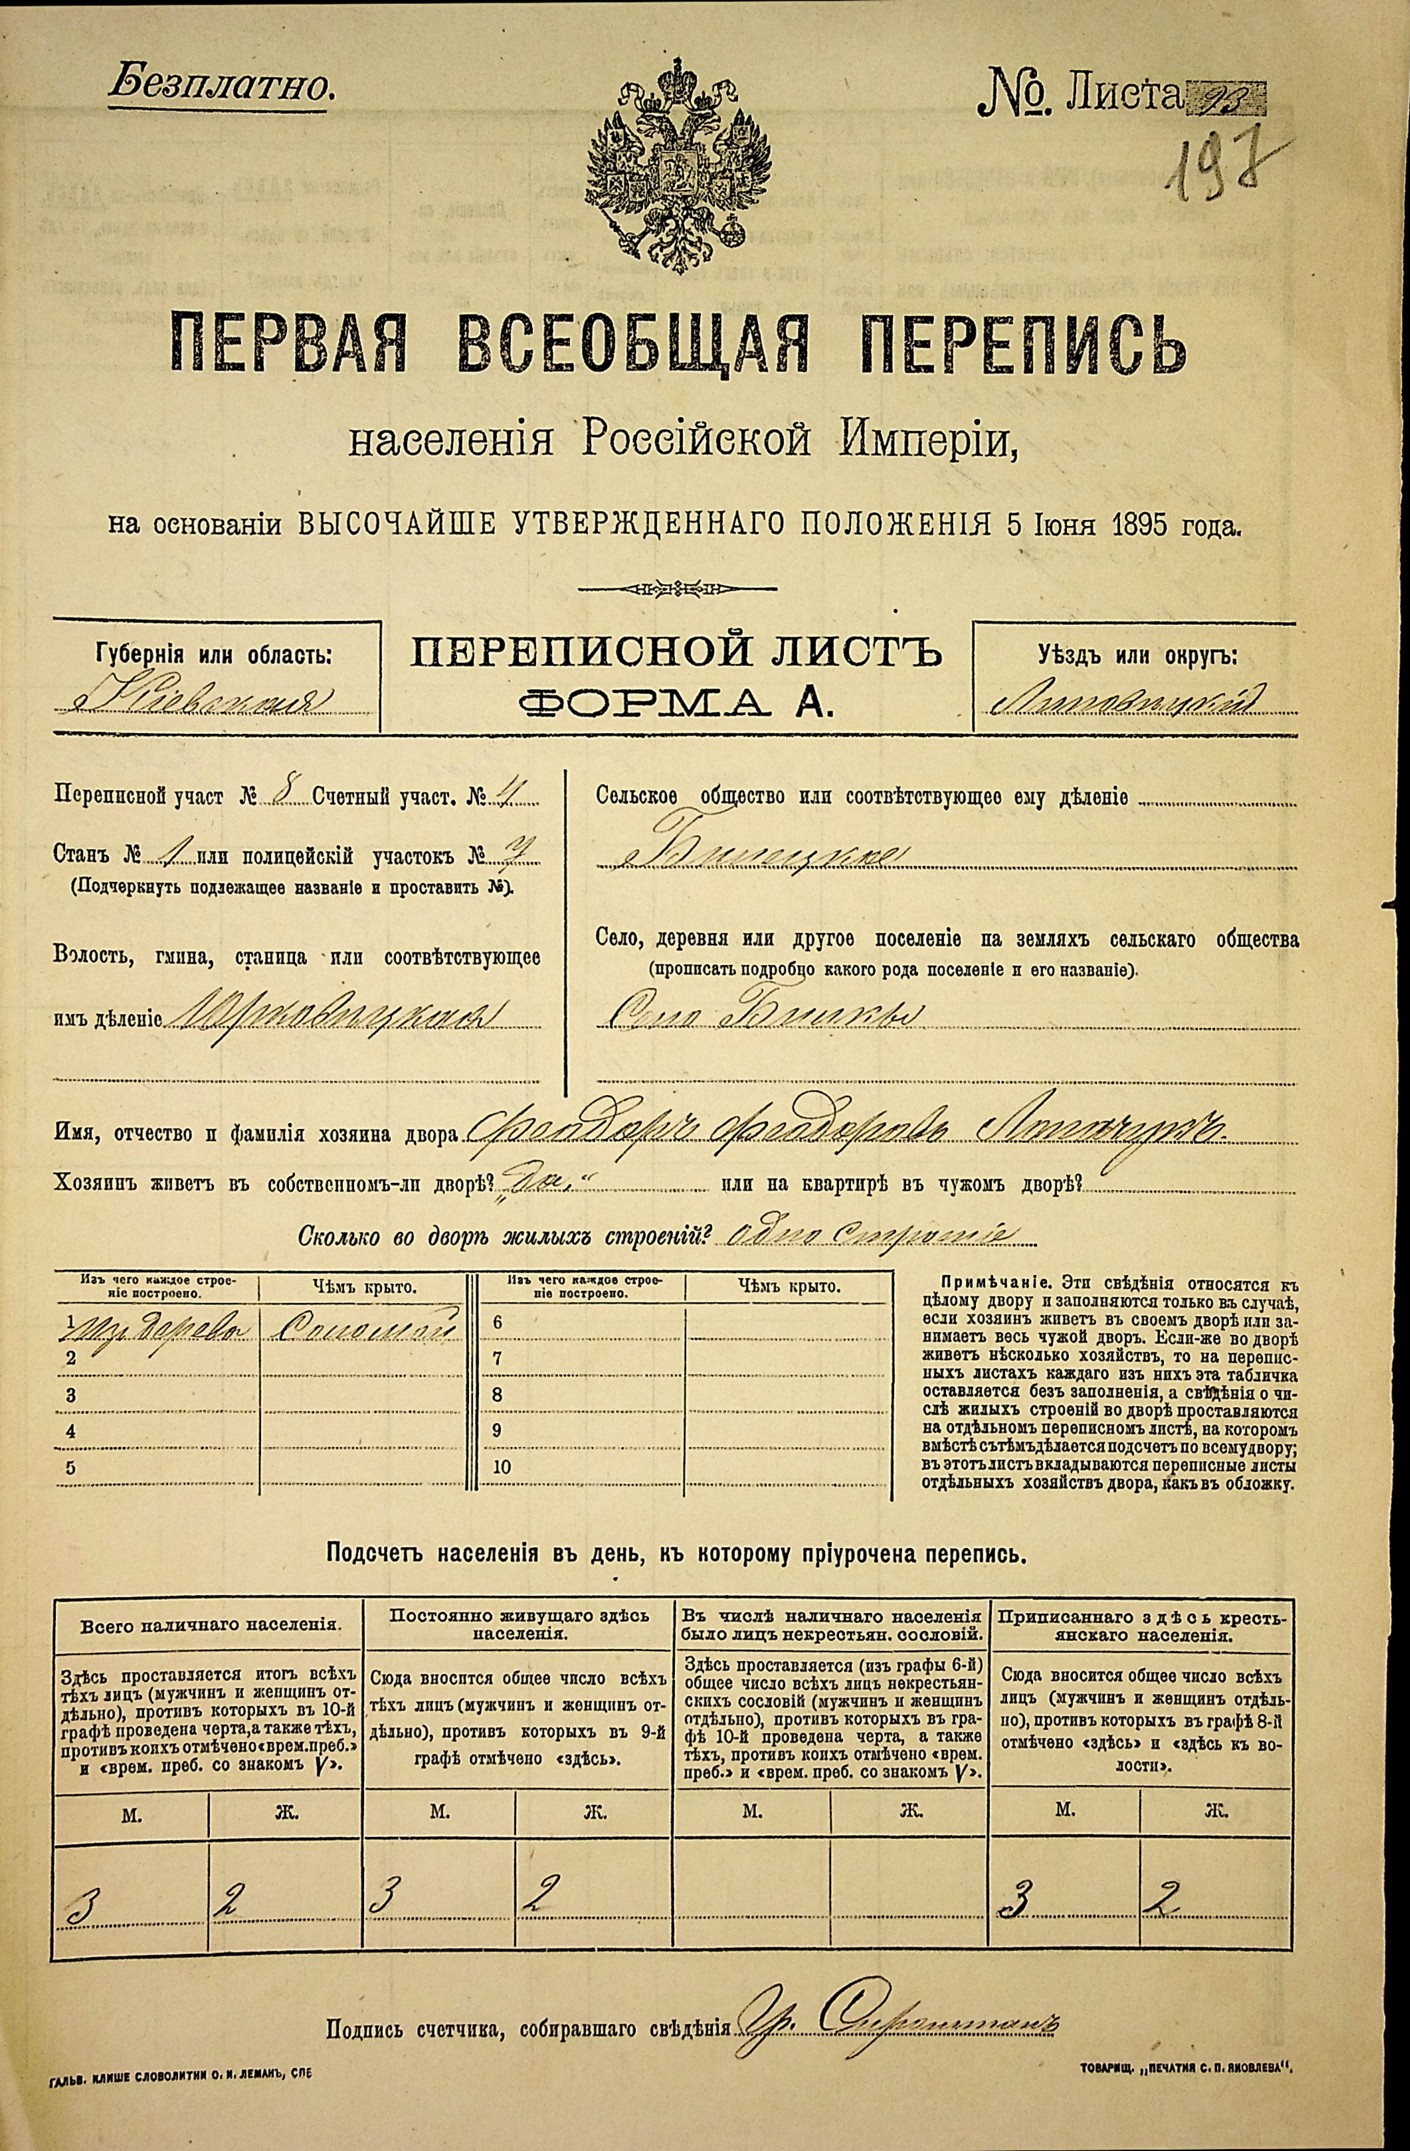 Безплатно.
№. Листа 93
197
ПЕРВАЯ ВСЕОБЩАЯ ПЕРЕПИСЬ
населенія Россійской Имперіи,
на основаніи ВЫСОЧАЙШЕ УТВЕРЖДЕННАГО ПОЛОЖЕНІЯ 5 Іюня 1895 года.
Губернія или область:
Кіевская
ПЕРЕПИСНОЙ ЛИСТЪ
ФОРМА А.
Уѣздъ или округъ:
Липовецкій
Переписной участ № 8 Счетный участ. № 4
Станъ № 1 или полицейскій участокъ №
(Подчеркнуть подлежащее названіе и проставить №).
Волость, гмина, станица или соотвѣтствующее
имъ дѣленіе Юрковецкая
Сельское общество или соотвѣтствующее ему дѣленіе
Село, деревня или другое поселеніе на земляхъ сельскаго общества
(прописать подробно какого рода поселеніе и его названіе).
Село
Имя, отчество и фамилія хозяина двора Феодоръ Феодоровъ
Хозяинъ живетъ въ собственномъ-ли дворѣ? „да“ или на квартирѣ въ чужомъ дворѣ?
Сколько во дворѣ жилыхъ строеній? одно строеніе
Изъ чего каждое строе-
ніе построено.
Чѣмъ крыто.
Изъ чего каждое строе-
ніе построено.
Чѣмъ крыто.
1 Изъ дерева Соломой 6
2 7
3 8
4 9
5 10
Примѣчаніе. Эти свѣдѣнія относятся къ
цѣлому двору и заполняются только въ случаѣ,
если хозяинъ живетъ въ своемъ дворѣ или за-
нимаетъ весь чужой дворъ. Если-же во дворѣ
живетъ нѣсколько хозяйствъ, то на перепис-
ныхъ листахъ каждаго изъ нихъ эта табличка
оставляется безъ заполненія, а свѣдѣнія о чи-
слѣ жилыхъ строеній во дворѣ проставляются
на отдѣльномъ переписномъ листѣ, на которомъ
вмѣстѣ съ тѣмъ дѣлается подсчетъ по всему двору;
въ этотъ листъ вкладываются переписные листы
отдѣльныхъ хозяйствъ двора, какъ въ обложку.
Подсчетъ населенія въ день, къ которому пріурочена перепись.
Всего наличнаго населенія.
Здѣсь проставляется итогъ всѣхъ
тѣхъ лицъ (мужчинъ и женщинъ от-
дѣльно), противъ которыхъ въ 10-й
графѣ проведена черта, а также тѣхъ,
противъ коихъ отмѣчено «врем. преб.»
и «врем. преб. со знакомъ V».
Постоянно живущаго здѣсь
населенія.
Сюда вносится общее число всѣхъ
тѣхъ лицъ (мужчинъ и женщинъ от-
дѣльно), противъ которыхъ въ 9-й
графѣ отмѣчено «здѣсь».
Въ числѣ наличнаго населенія
было лицъ некрестьян. сословій.
Здѣсь проставляется (изъ графы 6-й)
общее число всѣхъ лицъ некрестьян-
скихъ сословій (мужчинъ и женщинъ
отдѣльно), противъ которыхъ въ гра-
фѣ 10-й проведена черта, а также
тѣхъ, противъ коихъ отмѣчено «врем.
преб.» и «врем. преб. со знакомъ V».
Приписаннаго здѣсь кресть-
янскаго населенія.
Сюда вносится общее число всѣхъ
лицъ (мужчинъ и женщинъ отдѣль-
но), противъ которыхъ въ графѣ 8-й
отмѣчено «здѣсь» и «здѣсь къ во-
лости».
М. Ж. М. Ж. М. Ж. М. Ж.
3 2 3 2 3 2
Подпись счетчика, собиравшаго свѣдѣнія Гр.
ГАЛЬВ. КЛИШЕ СЛОВОЛИТНИ О. И. ЛЕМАНЪ, СПБ
ТОВАРИЩ. „ПЕЧАТНЯ С. П. ЯКОВЛЕВА“.